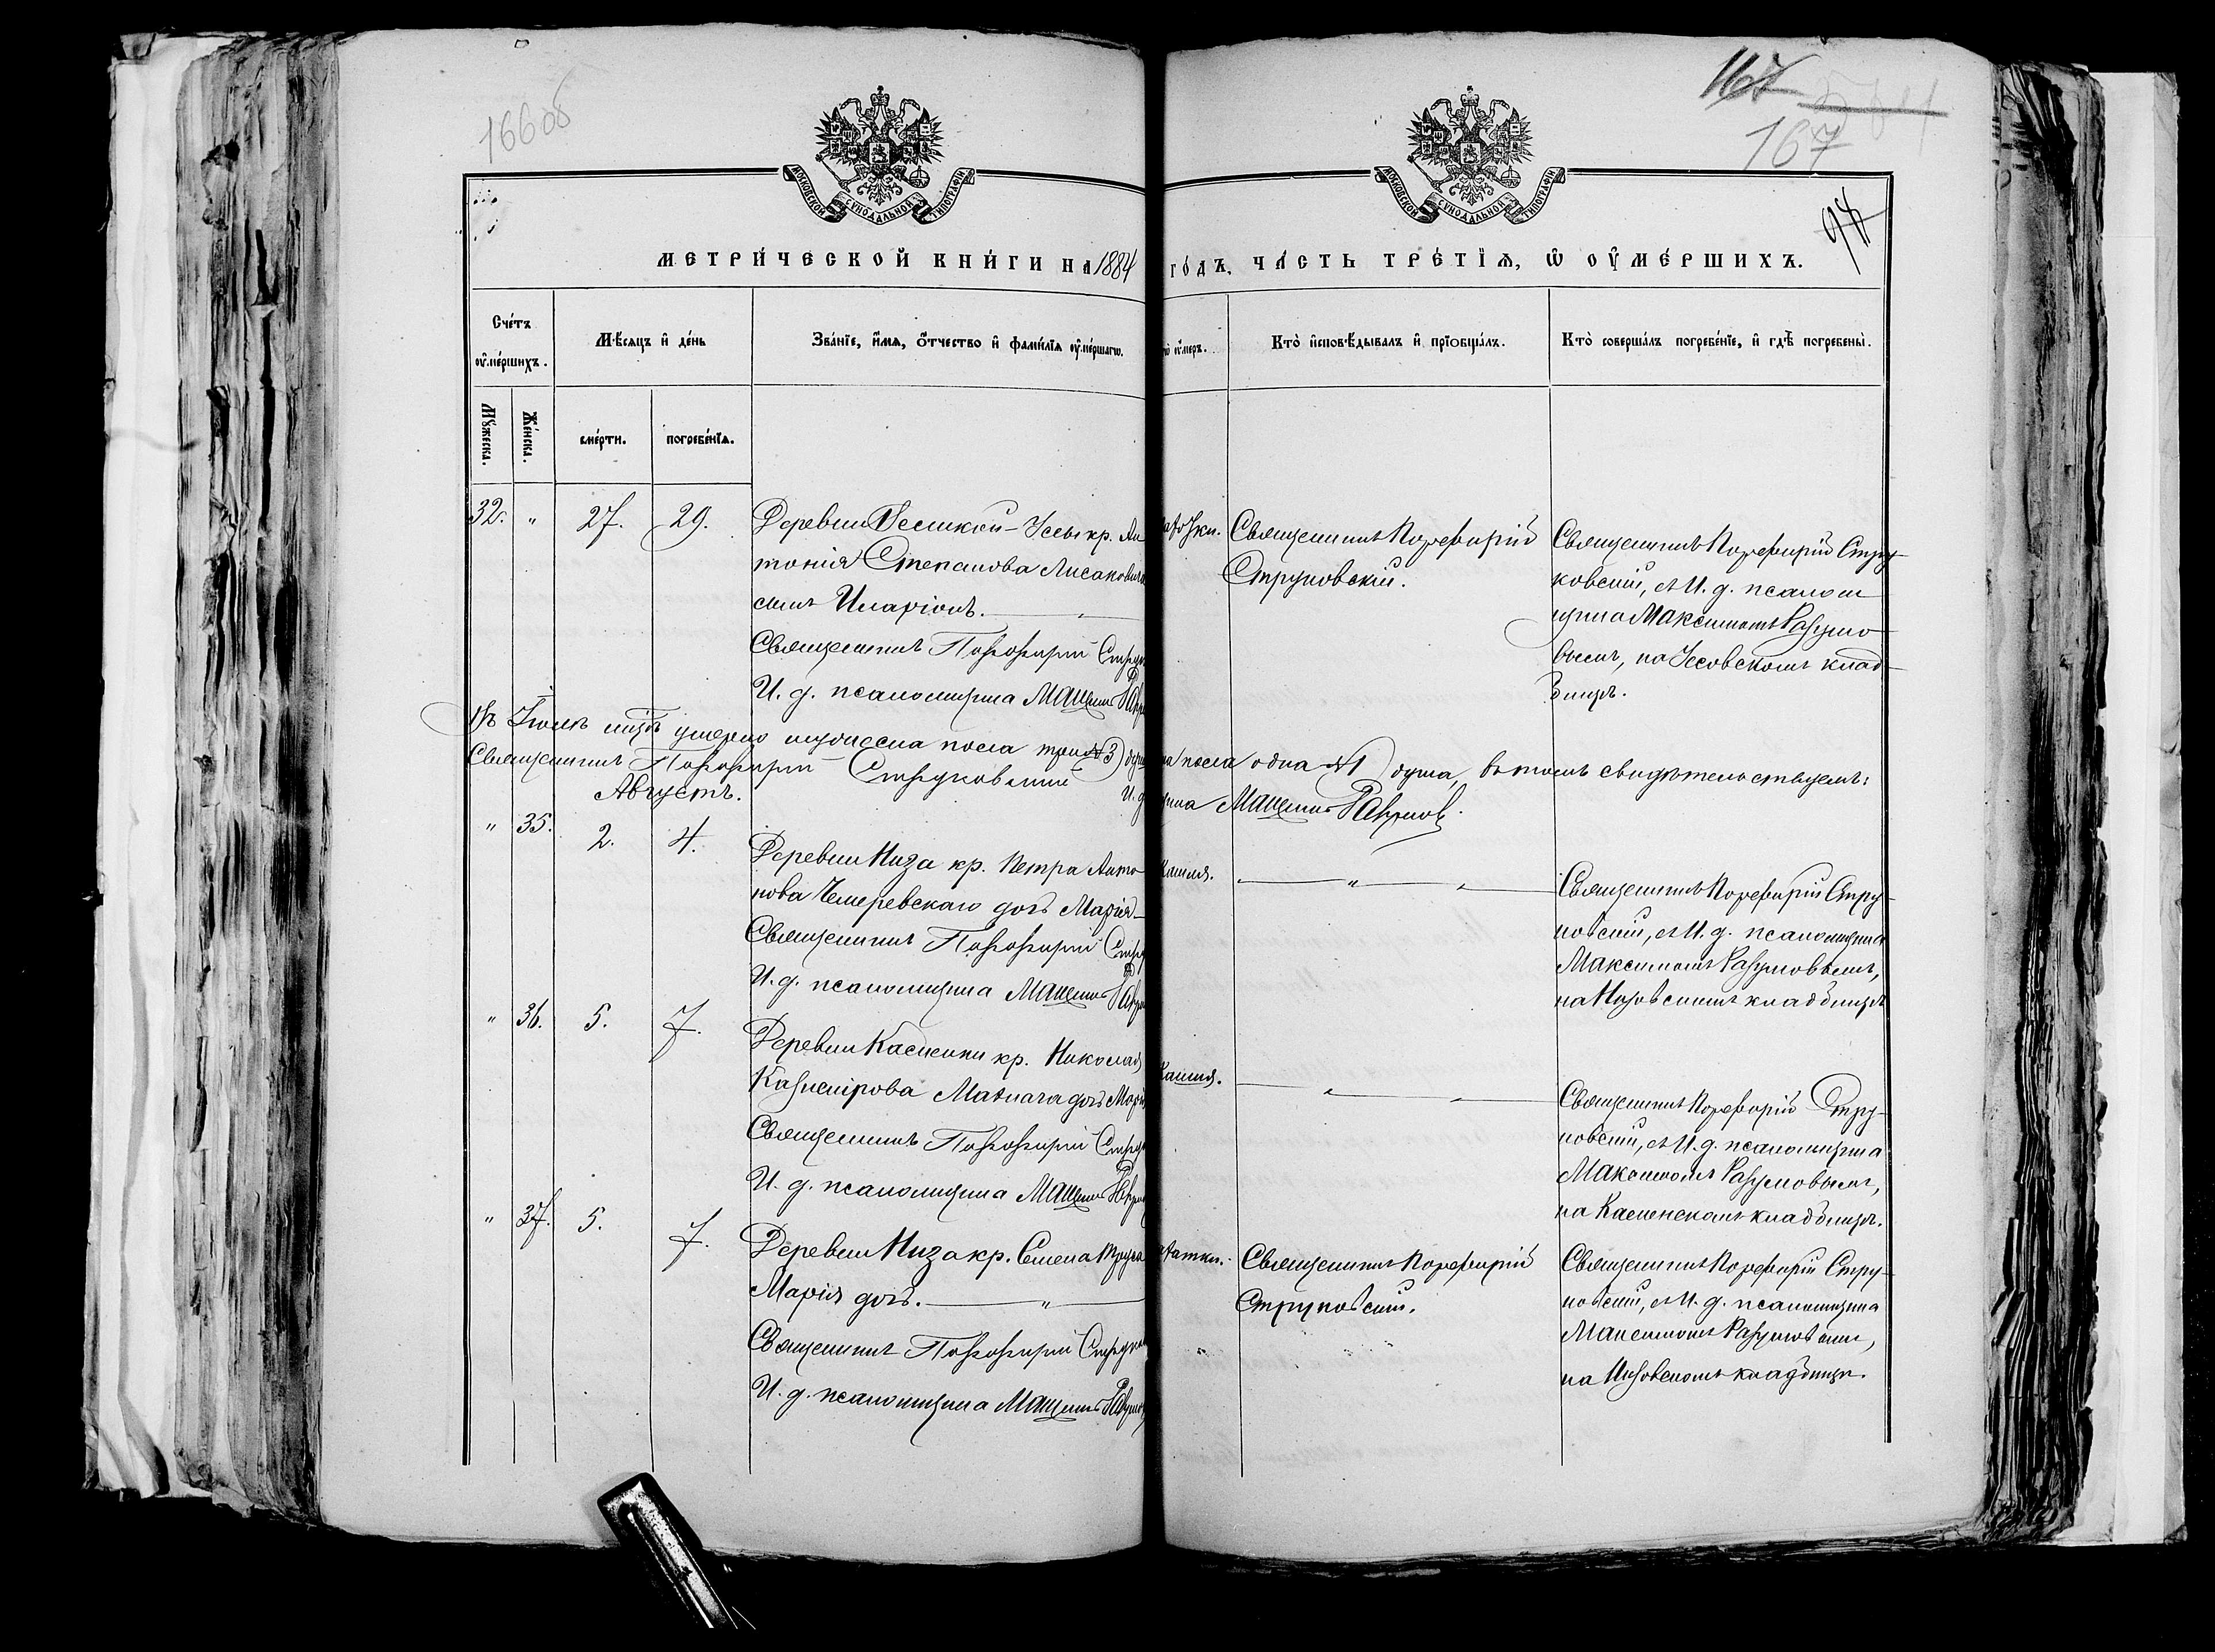 166об
167
167
94
МОСКОВСКОЙ СѴНОДАЛЬНОЙ ТИПОГРАФІИ
МОСКОВСКОЙ СѴНОДАЛЬНОЙ ТИПОГРАФІИ
МЕТРИ́ЧЕСКОЙ КНИ́ГИ НА 1884 ГО́ДЪ, ЧА́СТЬ ТРЕ́ТІѦ, Ѡ ОУ҆МЕ́РШИХЪ.
Сче́тъ оу҆ме́ршихъ.
Мѣ́сяцъ и҆ де́нь
Зва́нїе, и҆́мѧ, ѻ҆́тчество и҆ фами́лїѧ оу҆ме́ршагѡ.
оу҆́меръ.
Кто̀ и҆сповѣ́дывалъ и҆ прїѡбща́лъ.
Кто̀ соверша́лъ погребе́нїе, и҆ гдѣ̀ погребены̀.
Мꙋ́жеска.
Же́нска.
сме́рти.
погребе́нїѧ.
32. " 27. 29.
Деревни Великой-Усы кр. Ан
тонія Степанова Лисакович
сынъ Иларіонъ.
Священникъ Порфирій Струк
И. д. псаломщика Максимъ Разум
Священникъ Порфирій
Струковскій.
Священникъ Порфирій Стру-
ковскій, съ И. д. псалом
щика Максимомъ Разумо
вымъ, на Усовскомъ клад-
бищѣ.
Въ Іюлѣ мѣсѣ умерло мужеска пола три №3) душ
на пола одна №1) душа, въ томъ свидѣтельствуемъ:
Священникъ Порфирій Струковскій И. д.
щика Максимъ Разумов.
Августъ.
" 35. 2. 4.
Деревни Низа кр. Петра Анто-
нова Чемеревскаго дочь Марія-
Священникъ Порфирій Стру
И. д. псаломщика Максимъ Разум
Кашля. — " — " —
Священникъ Порфирій Стру-
ковскій, съ И. д. псаломщика
Максимомъ Разумовымъ,
на Низовскомъ кладбищѣ
" 36. 5. 7.
Деревни Каменки кр. Николая
Казимірова дочь Марі
Священникъ Порфирій Струк
И. д. псаломщика Максимъ Разум
Кашля. — " — " —
Священникъ Порфирій Стру-
ковскій, съ И. д. псаломщика
Максимомъ Разумовымъ,
на Каменскомъ кладбищѣ.
" 37. 5. 7.
Деревни Низа кр.
Марія дочь. — " —
Священникъ Порфирій Струков
И. д. псаломщика Максимъ Разумо
Священникъ Порфирій
Струковскій.
Священникъ Порфирій Стру-
ковскій, съ И. д. псаломщика
Максимомъ Разумовымъ,
на Низовскомъ кладбищѣ.